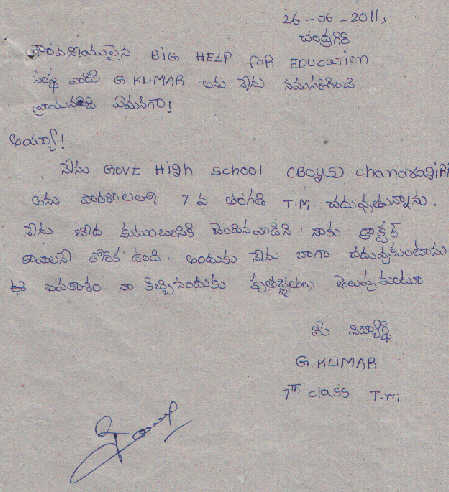 26-06-2011,
చంద్రగిరి
గౌరవనీయులైన BIG HELP FOR EDUCATION
సంస్థ వారికి G KUMAR అను నేను నమస్కరించి
వ్రాయునది ఏమనగా!
అయ్యా!
నేను GOVT HIGH SCHOOL (Boys) chandragiri
అను పాఠశాలలో 7 వ తరగతి T.M. చదువుతున్నాను.
నేను బీద కుటుంబానికి చెందినవాడిని. నాకు డాక్టర్
కావాలని కోరిక ఉంది. అందుకు నేను బాగా చదువుకుంటాను
ఈ అవకాశం నా కిచ్చినందుకు కృతజ్ఞతలు తెలుపుకుంటూ
మీ విద్యార్థి
G.KUMAR
7th class T.M